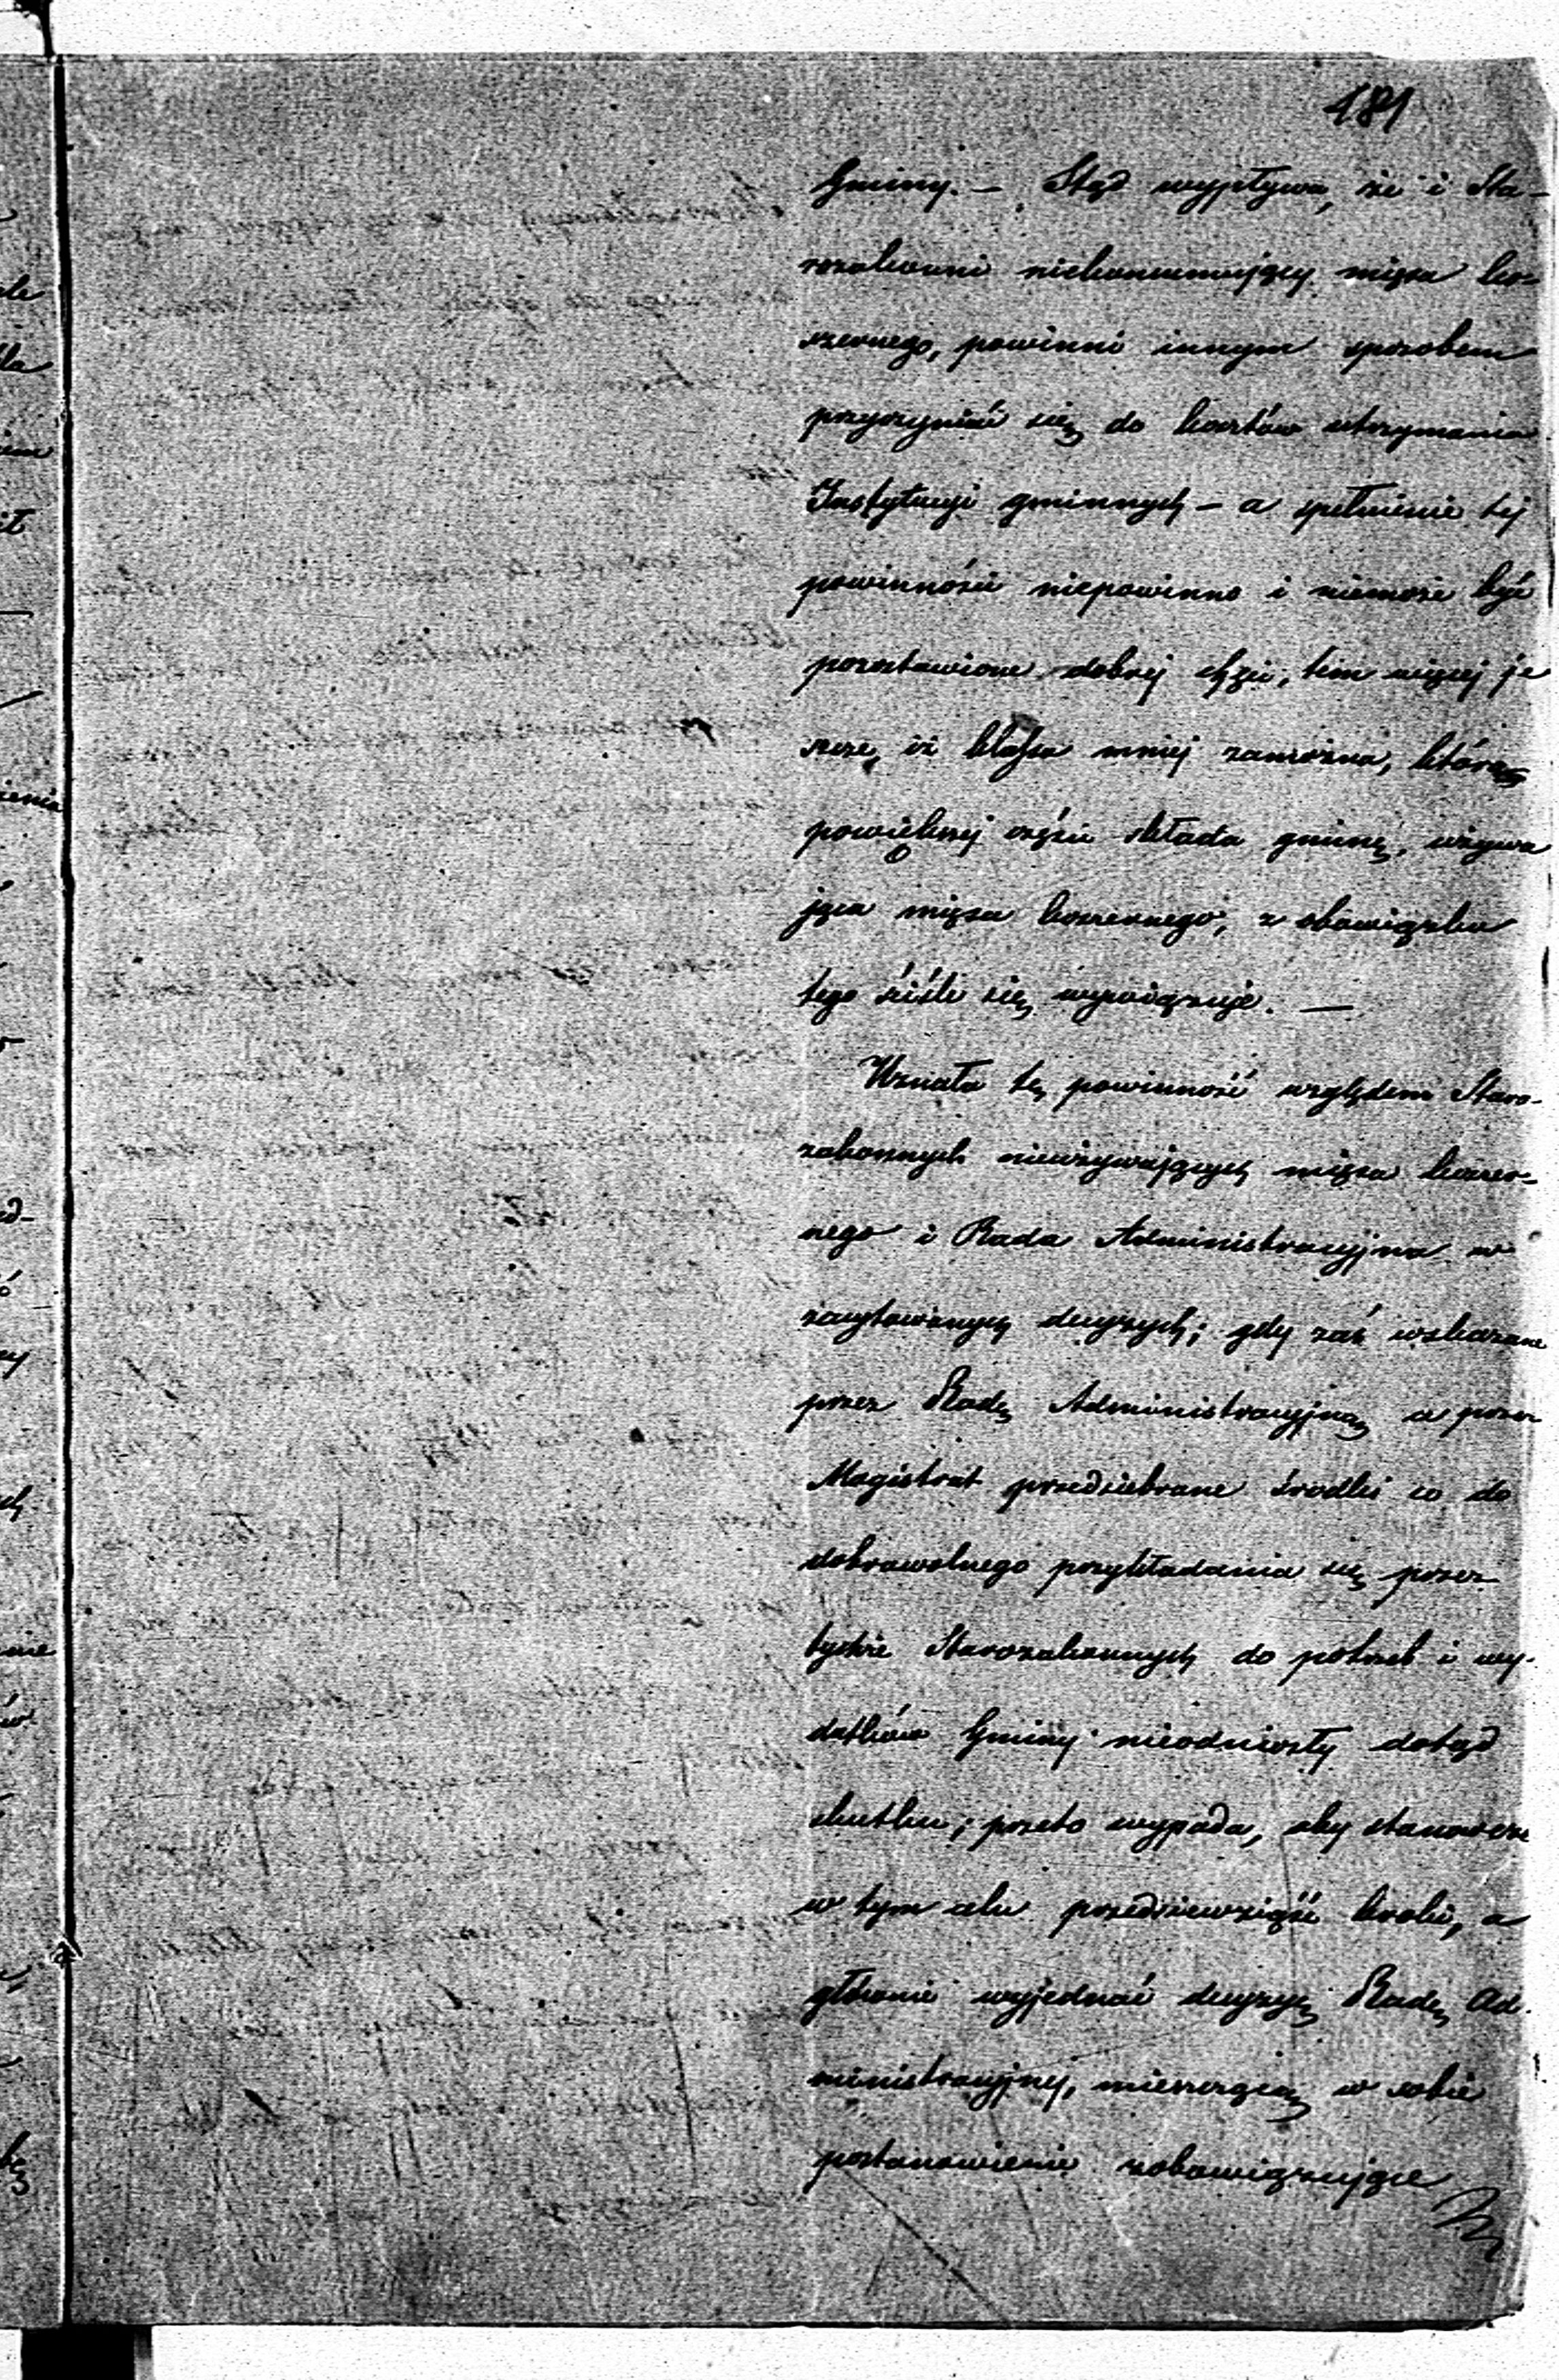 181
Gminy. — Stąd wypływa, że i Sta-
rozakonni niekonsumujący mięsa ko-
szernego, powinni innym sposobem
przyczyniać się do kosztów utrzymania
Instytucyi gminnych — a spełnienie tej
powinności niepowinno i niemoże być
pozostawione dobrej chęci, tem więcej je
szcze, iż klassa mniej zamożna, którą
powiększej części składa gminę, używa
jąca mięsa koszernego, z obowiązku
tego ściśle się wywiązuje. —
Uznała tę powinność względem Staro-
zakonnych nieużywających mięsa koszer-
nego i Rada Administracyjna w
zacytowanych decyzych; gdy zaś wskazane
przez Radę Administracyjną a przez
Magistrat przedsiebrane środki co do
dobrowolnego przykładania się przez
tychże Starozakonnych do potrzeb i wy-
datków Gminy nieodniosły dotąd
skutku; przeto wypada, aby stanowcze
w tym celu przedsięwziąść kroki, a
głównie wyjednać decyzyę Rady Ad-
ministracyjnej, mieszczącą w sobie
postanowienie zobowiązujące